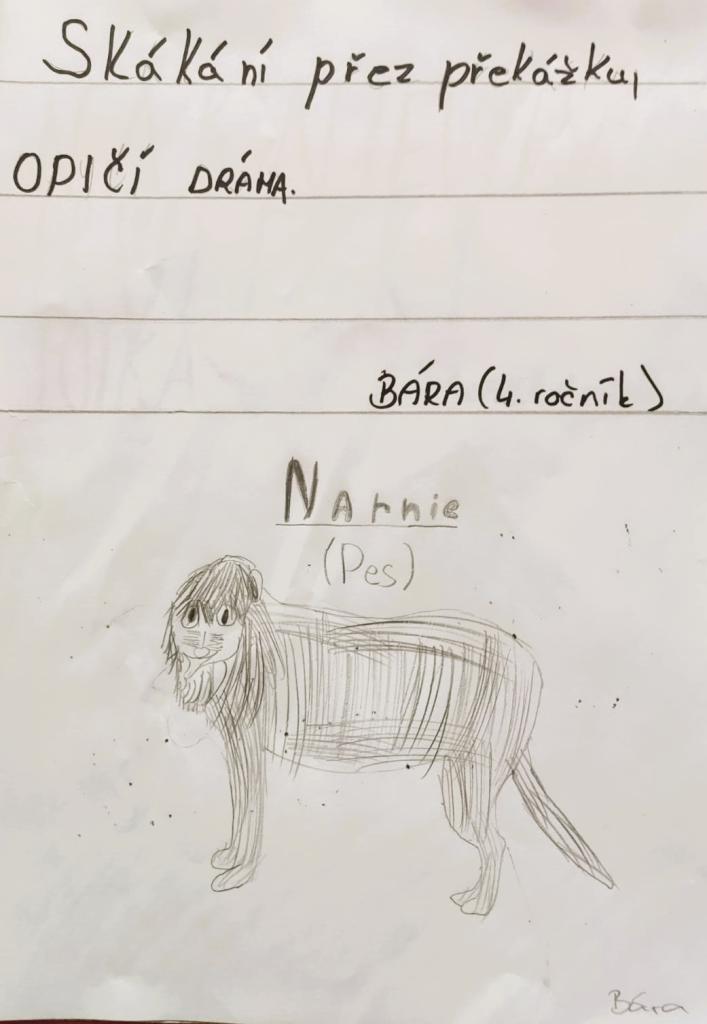 Skákání přez překážku,
OPIČÍ DRÁHA.
BÁRA (4. ročník)
Narnie
(Pes)
Bára